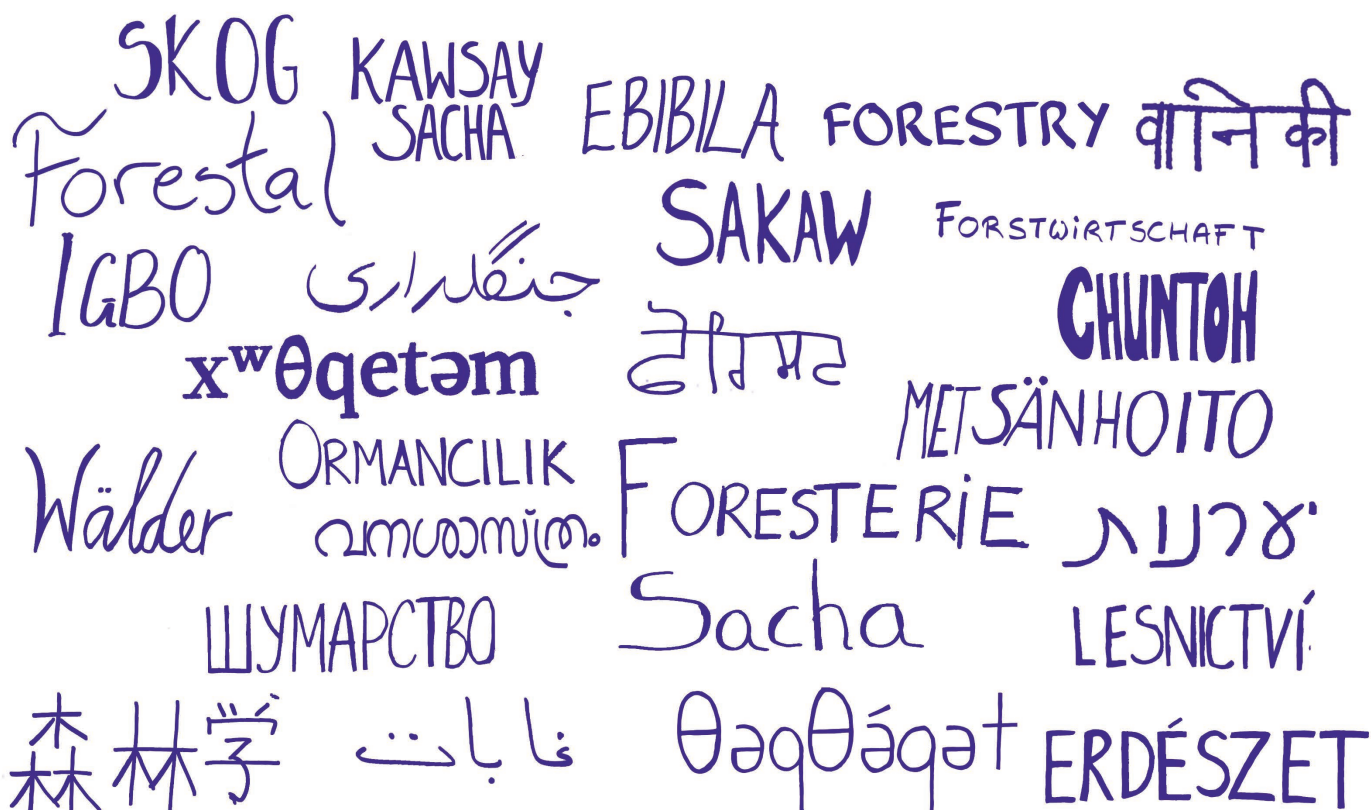 SKOG
KAWSAY
SACHA
EBIBILA
FORESTRY
वानिकी
Forestal
SAKAW
FORSTWiRTSCHAFT
IGBO
جنگلداری
CHUNTOH
xʷθqetəm
METSÄNHOITO
ORMANCILIK
Wälder
FORESTERiE
വനശാസ്ത്രം
יערנות
ШУМАРСТВО
Sacha
LESNICTVÍ
森林学
غابات
θəqθə́qət
ERDÉSZET